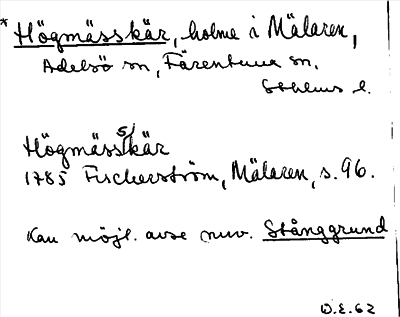 * Högmässkär, holme i Mälaren,
Adelsö sn, Färentuna sn.
Sthlms l.
Högmässkär
1785 Fischerström, Mälaren, s. 96.
Kan möjl. avse nuv. Stånggrund
D.E. 62